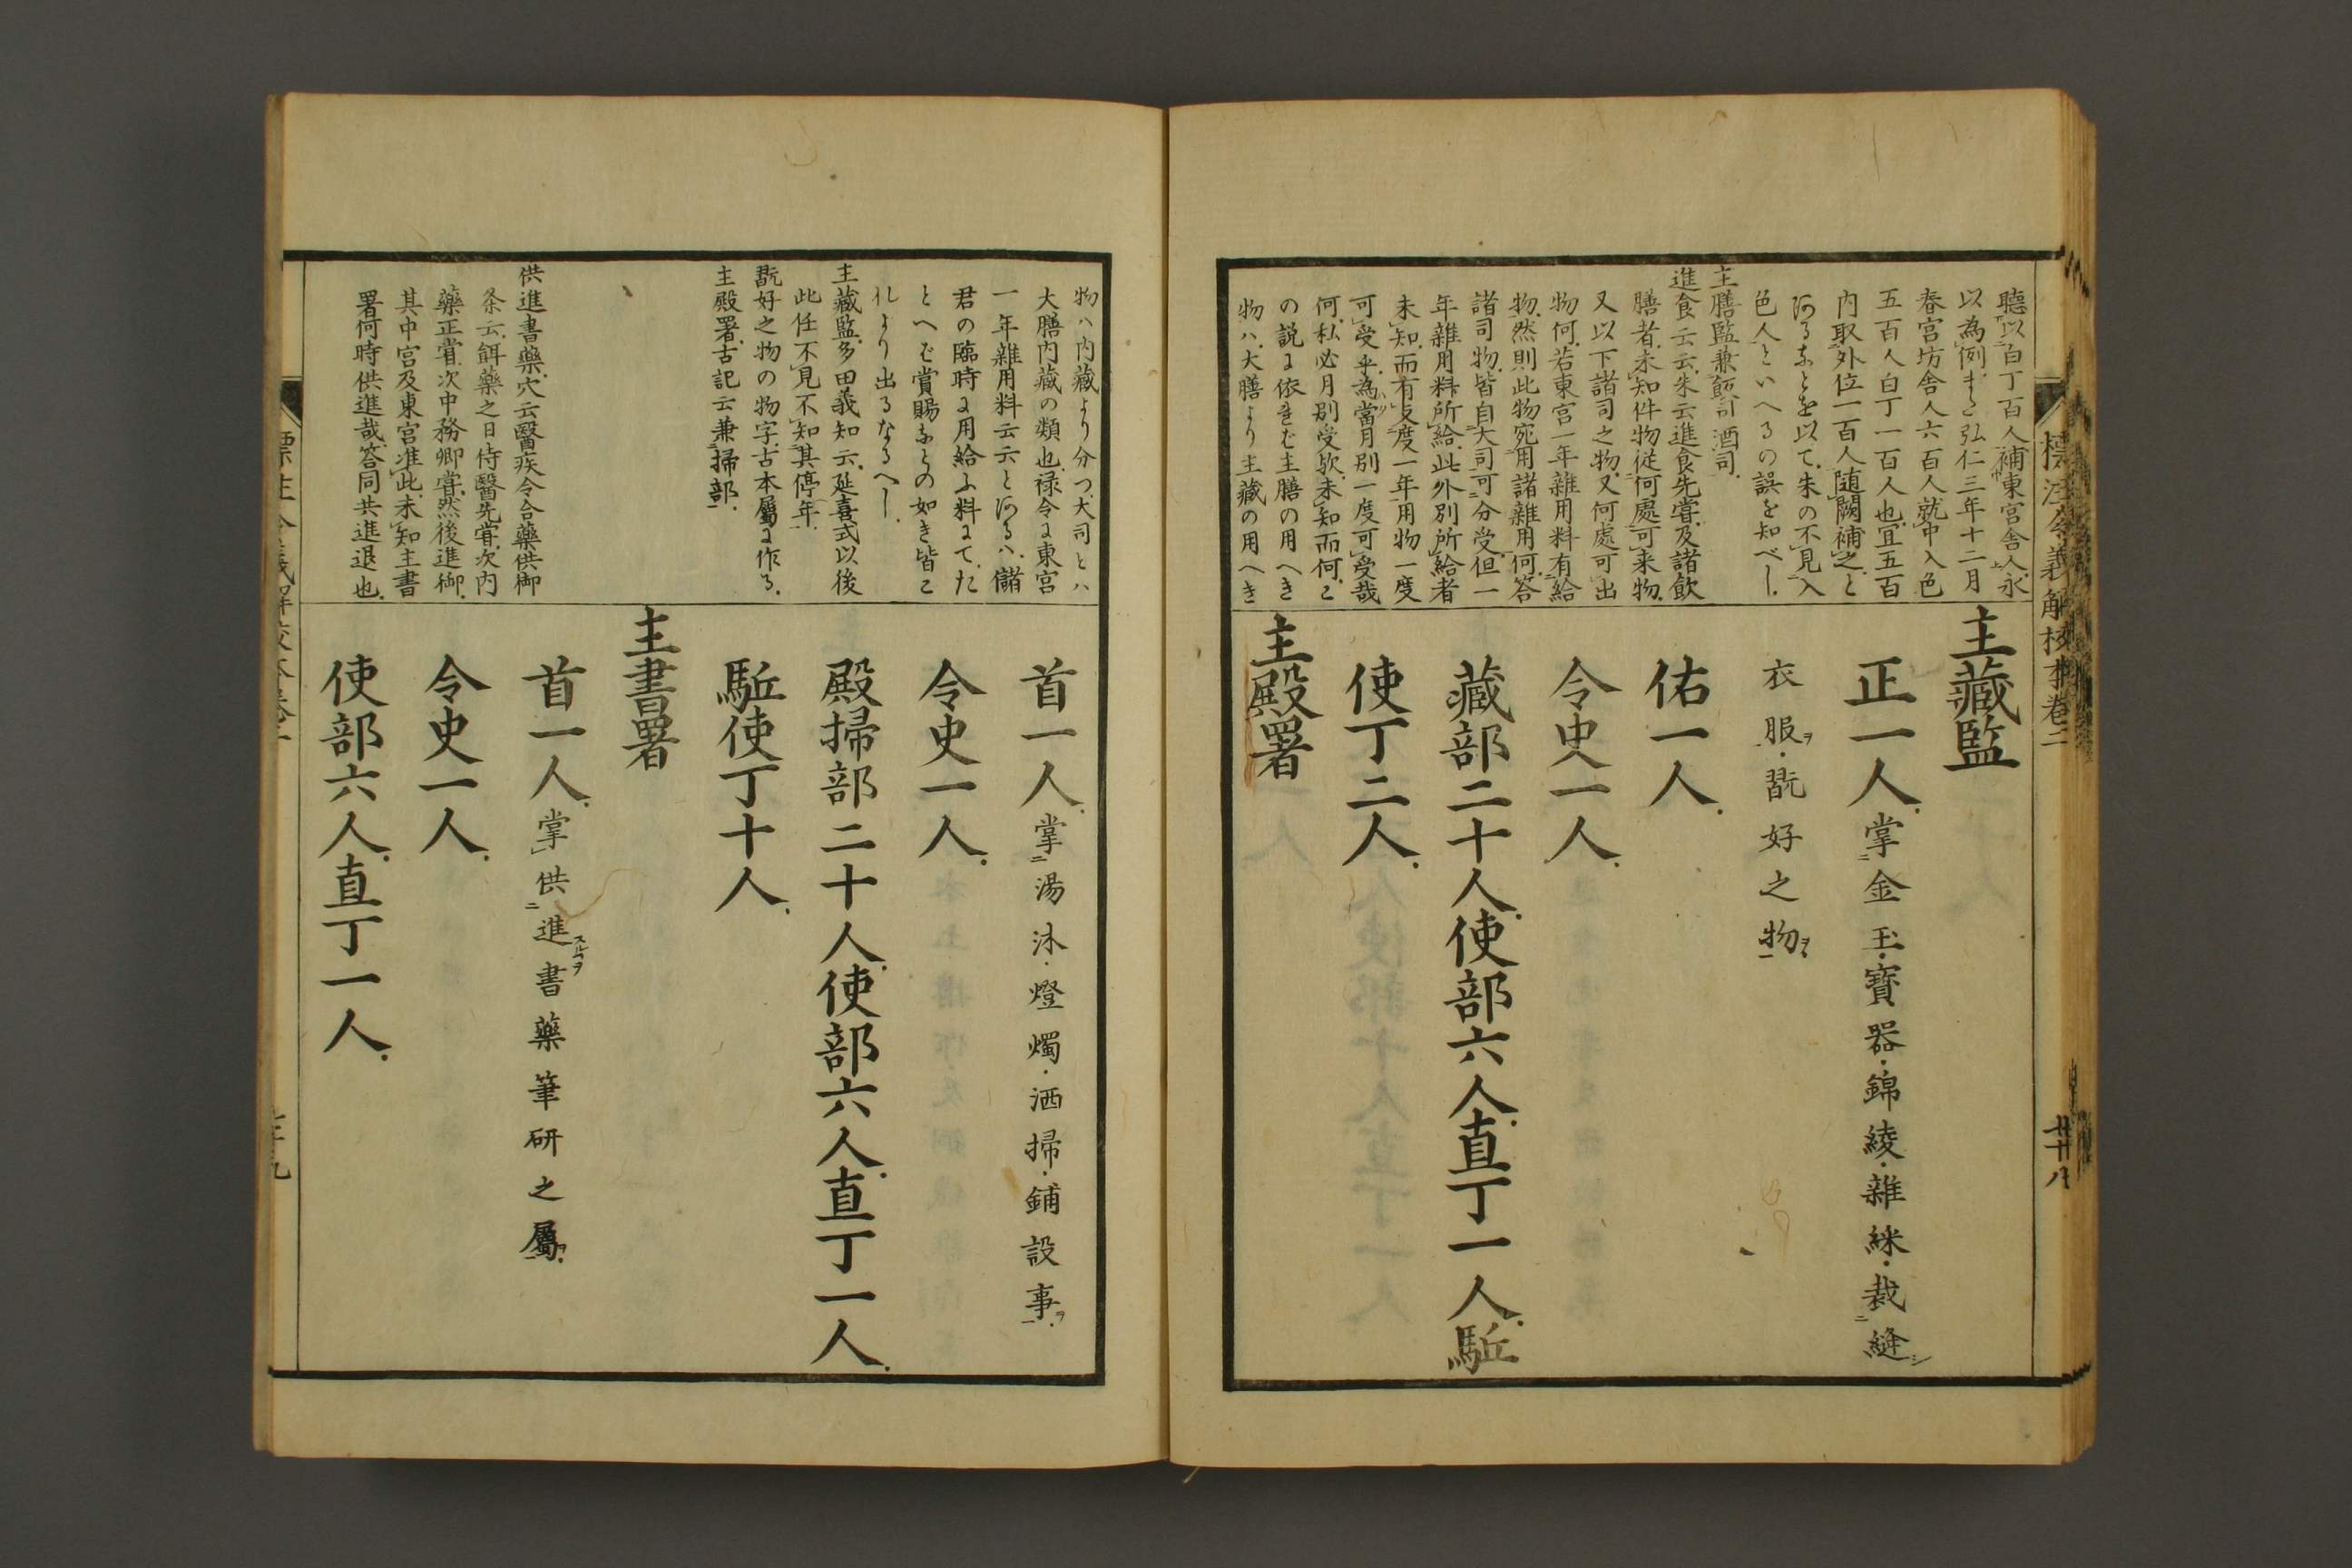 標注令義解校本卷二
聽以白丁百人補東宮舎人永
以為例また弘仁三年十二月
春宮坊舎人六百人就中入色
五百人白丁一百人也宜五百
内取外位一百人随闕補之と
あるなとを以て朱の不見入
色人といへるの誤を知べし
主膳監兼司酒司
進食云云朱云進食先嘗及諸飲
膳者未知件物從何處可来物
又以下諸司之物又何處可出
物何若東宮一年雜用料有給
物然則此物宛用諸雜用何答
諸司物皆自大司可分受但一
年雜用料所給此外別所給者
未知而有支度一年用物一度
可受乎為當月別一度可受哉
何私必月別受歟未知而何こ
の説に依れば主膳の用へき
物ハ大膳より主藏の用へき
主藏監
正一人掌金玉寶器錦綾雜綵裁縫
衣服ヲ翫好之物ヲ
佑一人
令史一人
藏部二十人使部六人直丁一人駈
使丁二人
主殿署
廿八
物ハ内藏より分つ大司とハ
大膳内藏の類也禄令に東宮
一年雜用料云云とあるハ儲
君の臨時に用給ふ料にてた
とへば賞賜なとの如き皆こ
れより出るなるへし
主藏監多田義知云延喜式以後
此任不見不知其停年
翫好之物の物字古本屬に作る
主殿署古記云兼掃部
供進書藥穴云醫疾令合藥供御
条云餌藥之日侍醫先嘗次内
藥正嘗次中務卿嘗然後進御
其中宮及東宮准此未知主書
署何時供進哉答同共進退也
首一人掌湯沐燈燭洒掃鋪設事ヲ
令史一人
殿掃部二十人使部六人直丁一人
駈使丁十人
主書署
首一人掌供進スルヿヲ書藥筆研之屬
令史一人
使部六人直丁一人